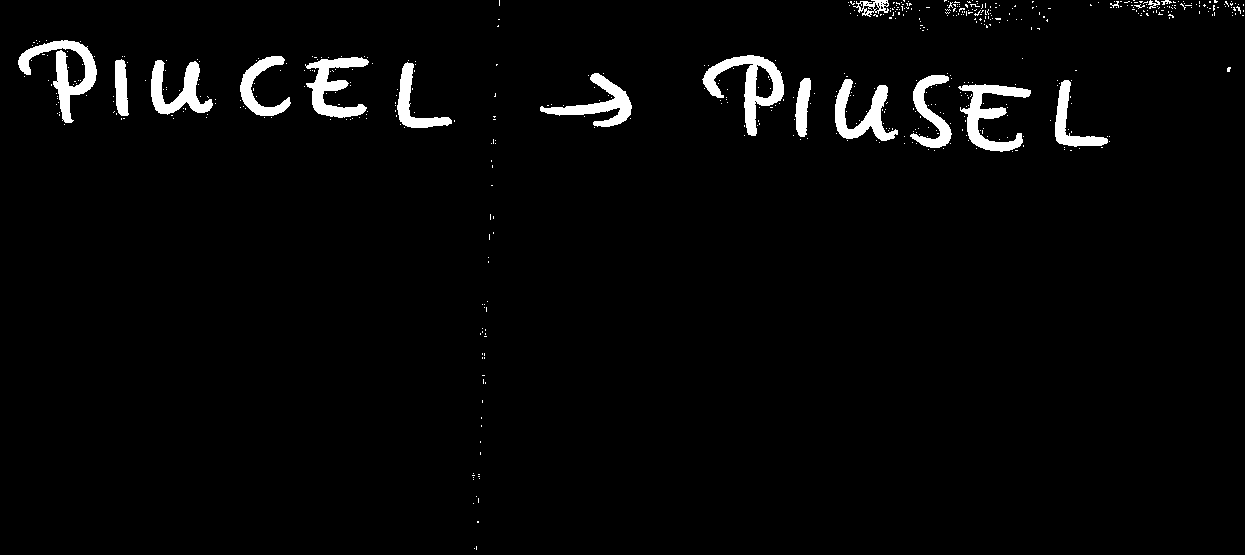 PIUCEL → PIUSEL